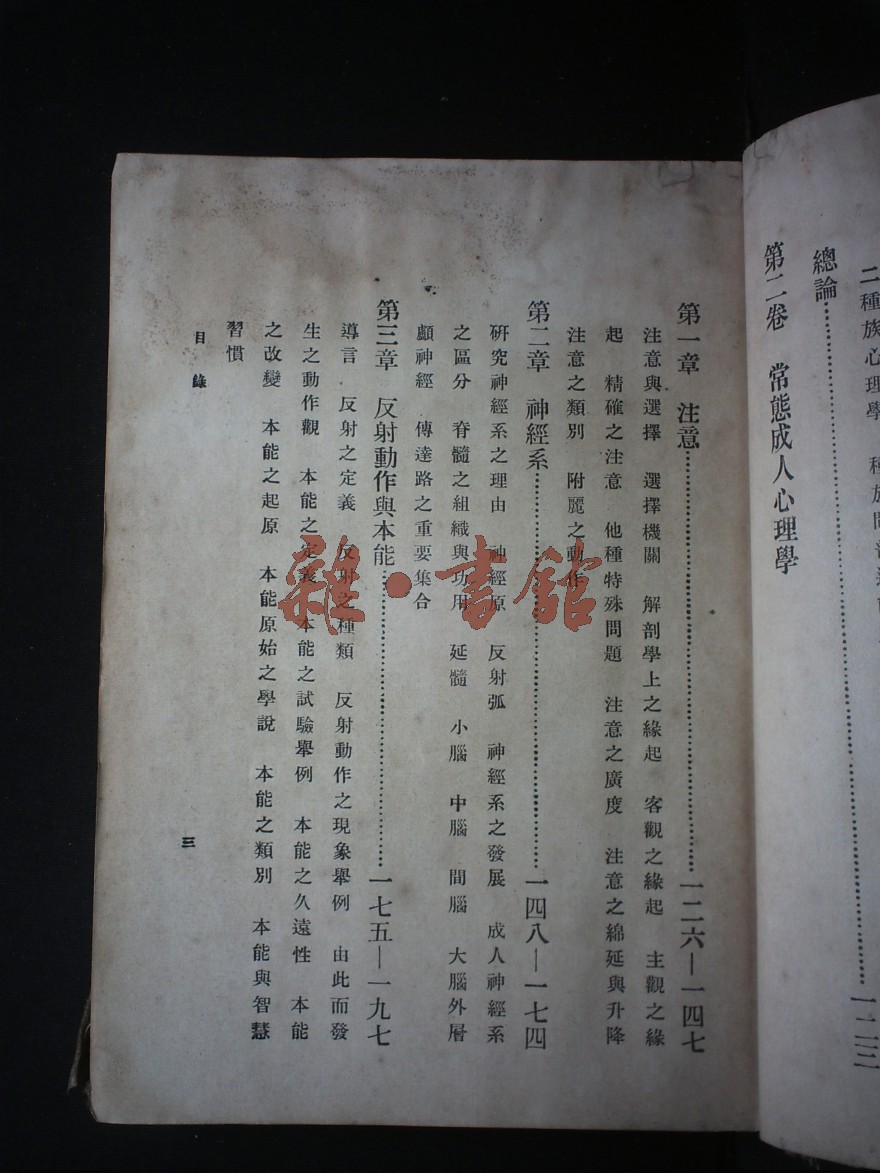 二 種族心理學 種族
總論……一二三
第二卷 常態成人心理學
第一章 注意……一二六—一四七
注意與選擇 選擇機關 解剖學上之緣起 客觀之緣起 主觀之緣
起 精確之注意 他種特殊問題 注意之廣度 注意之綿延與升降
注意之類別 附麗之動作
第二章 神經系……一四八—一七四
研究神經系之理由 神經原 反射弧 神經系之發展 成人神經系
之區分 脊髓之組織與功用 延髓 小腦 中腦 間腦 大腦外層
顱神經 傳達路之重要集合
第三章 反射動作與本能……一七五—一九七
導言 反射之定義 反射之種類 反射動作之現象舉例 由此而發
生之動作觀 本能之定義 本能之試驗舉例 本能之久遠性 本能
之改變 本能之起原 本能原始之學說 本能之類別 本能與智慧
習慣
目錄
三
雜·書館